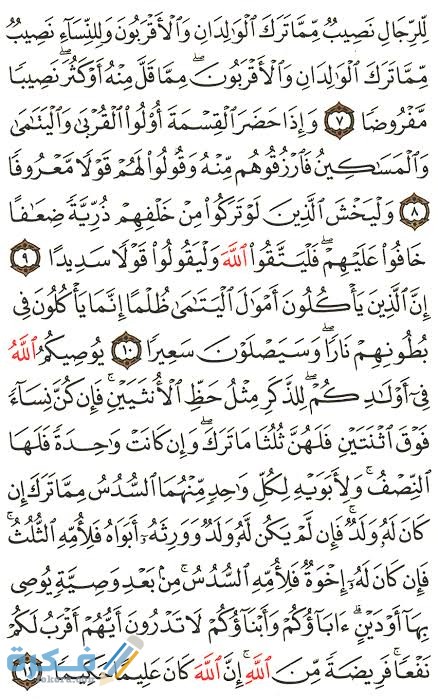 لِّلرِّجَالِ نَصِيبٌ مِّمَّا تَرَكَ ٱلْوَٰلِدَانِ وَٱلْأَقْرَبُونَ وَلِلنِّسَآءِ نَصِيبٌ
مِّمَّا تَرَكَ ٱلْوَٰلِدَانِ وَٱلْأَقْرَبُونَ مِمَّا قَلَّ مِنْهُ أَوْ كَثُرَ ۚ نَصِيبًا
مَّفْرُوضًا ٧ وَإِذَا حَضَرَ ٱلْقِسْمَةَ أُو۟لُوا۟ ٱلْقُرْبَىٰ وَٱلْيَتَٰمَىٰ
وَٱلْمَسَٰكِينُ فَٱرْزُقُوهُم مِّنْهُ وَقُولُوا۟ لَهُمْ قَوْلًا مَّعْرُوفًا
٨ وَلْيَخْشَ ٱلَّذِينَ لَوْ تَرَكُوا۟ مِنْ خَلْفِهِمْ ذُرِّيَّةً ضِعَٰفًا
خَافُوا۟ عَلَيْهِمْ فَلْيَتَّقُوا۟ ٱللَّهَ وَلْيَقُولُوا۟ قَوْلًا سَدِيدًا ٩
إِنَّ ٱلَّذِينَ يَأْكُلُونَ أَمْوَٰلَ ٱلْيَتَٰمَىٰ ظُلْمًا إِنَّمَا يَأْكُلُونَ فِى
بُطُونِهِمْ نَارًا ۖ وَسَيَصْلَوْنَ سَعِيرًا ١٠ يُوصِيكُمُ ٱللَّهُ
فِىٓ أَوْلَٰدِكُمْ ۖ لِلذَّكَرِ مِثْلُ حَظِّ ٱلْأُنثَيَيْنِ ۚ فَإِن كُنَّ نِسَآءً
فَوْقَ ٱثْنَتَيْنِ فَلَهُنَّ ثُلُثَا مَا تَرَكَ ۖ وَإِن كَانَتْ وَٰحِدَةً فَلَهَا
ٱلنِّصْفُ ۚ وَلِأَبَوَيْهِ لِكُلِّ وَٰحِدٍ مِّنْهُمَا ٱلسُّدُسُ مِمَّا تَرَكَ إِن
كَانَ لَهُۥ وَلَدٌ ۚ فَإِن لَّمْ يَكُن لَّهُۥ وَلَدٌ وَوَرِثَهُۥٓ أَبَوَاهُ فَلِأُمِّهِ ٱلثُّلُثُ ۚ
فَإِن كَانَ لَهُۥٓ إِخْوَةٌ فَلِأُمِّهِ ٱلسُّدُسُ ۚ مِنۢ بَعْدِ وَصِيَّةٍ يُوصِى
بِهَآ أَوْ دَيْنٍ ۗ ءَابَآؤُكُمْ وَأَبْنَآؤُكُمْ لَا تَدْرُونَ أَيُّهُمْ أَقْرَبُ لَكُمْ
نَفْعًا ۚ فَرِيضَةً مِّنَ ٱللَّهِ ۗ إِنَّ ٱللَّهَ كَانَ عَلِيمًا حَكِيمًا ١١
فكرة